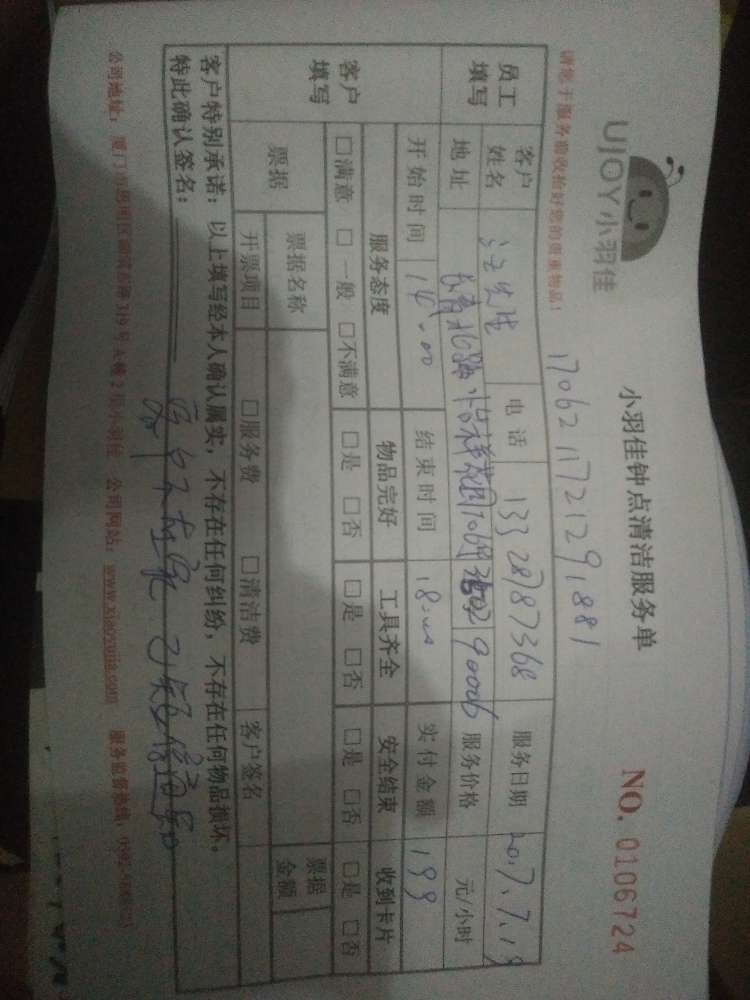 UJOY小羽佳
小羽佳钟点清洁服务单
NO. 0106724
请您于服务前收拾好您的贵重物品！
1706211721291881
员工填写 客户姓名 汪先生 电话 13328787368 服务日期 2017.7.19
地址 长青北路 吉祥花园 服务价格 元/小时
开始时间 14:00 结束时间 18:00 实付金额 199
客户填写 服务态度 物品完好 工具齐全 安全结束 收到卡片
□满意 □一般 □不满意 □是 □否 □是 □否 □是 □否 □是 □否
票据 票据名称 票据金额
开票项目 □服务费 □清洁费 客户签名
客户特别承诺： 以上填写经本人确认属实，不存在任何纠纷，不存在任何物品损坏。
特此确认签名：
公司地址： 厦门市思明区 319号 2 小羽佳 公司网站：www.xiaoyujia.com 服务监督热线：